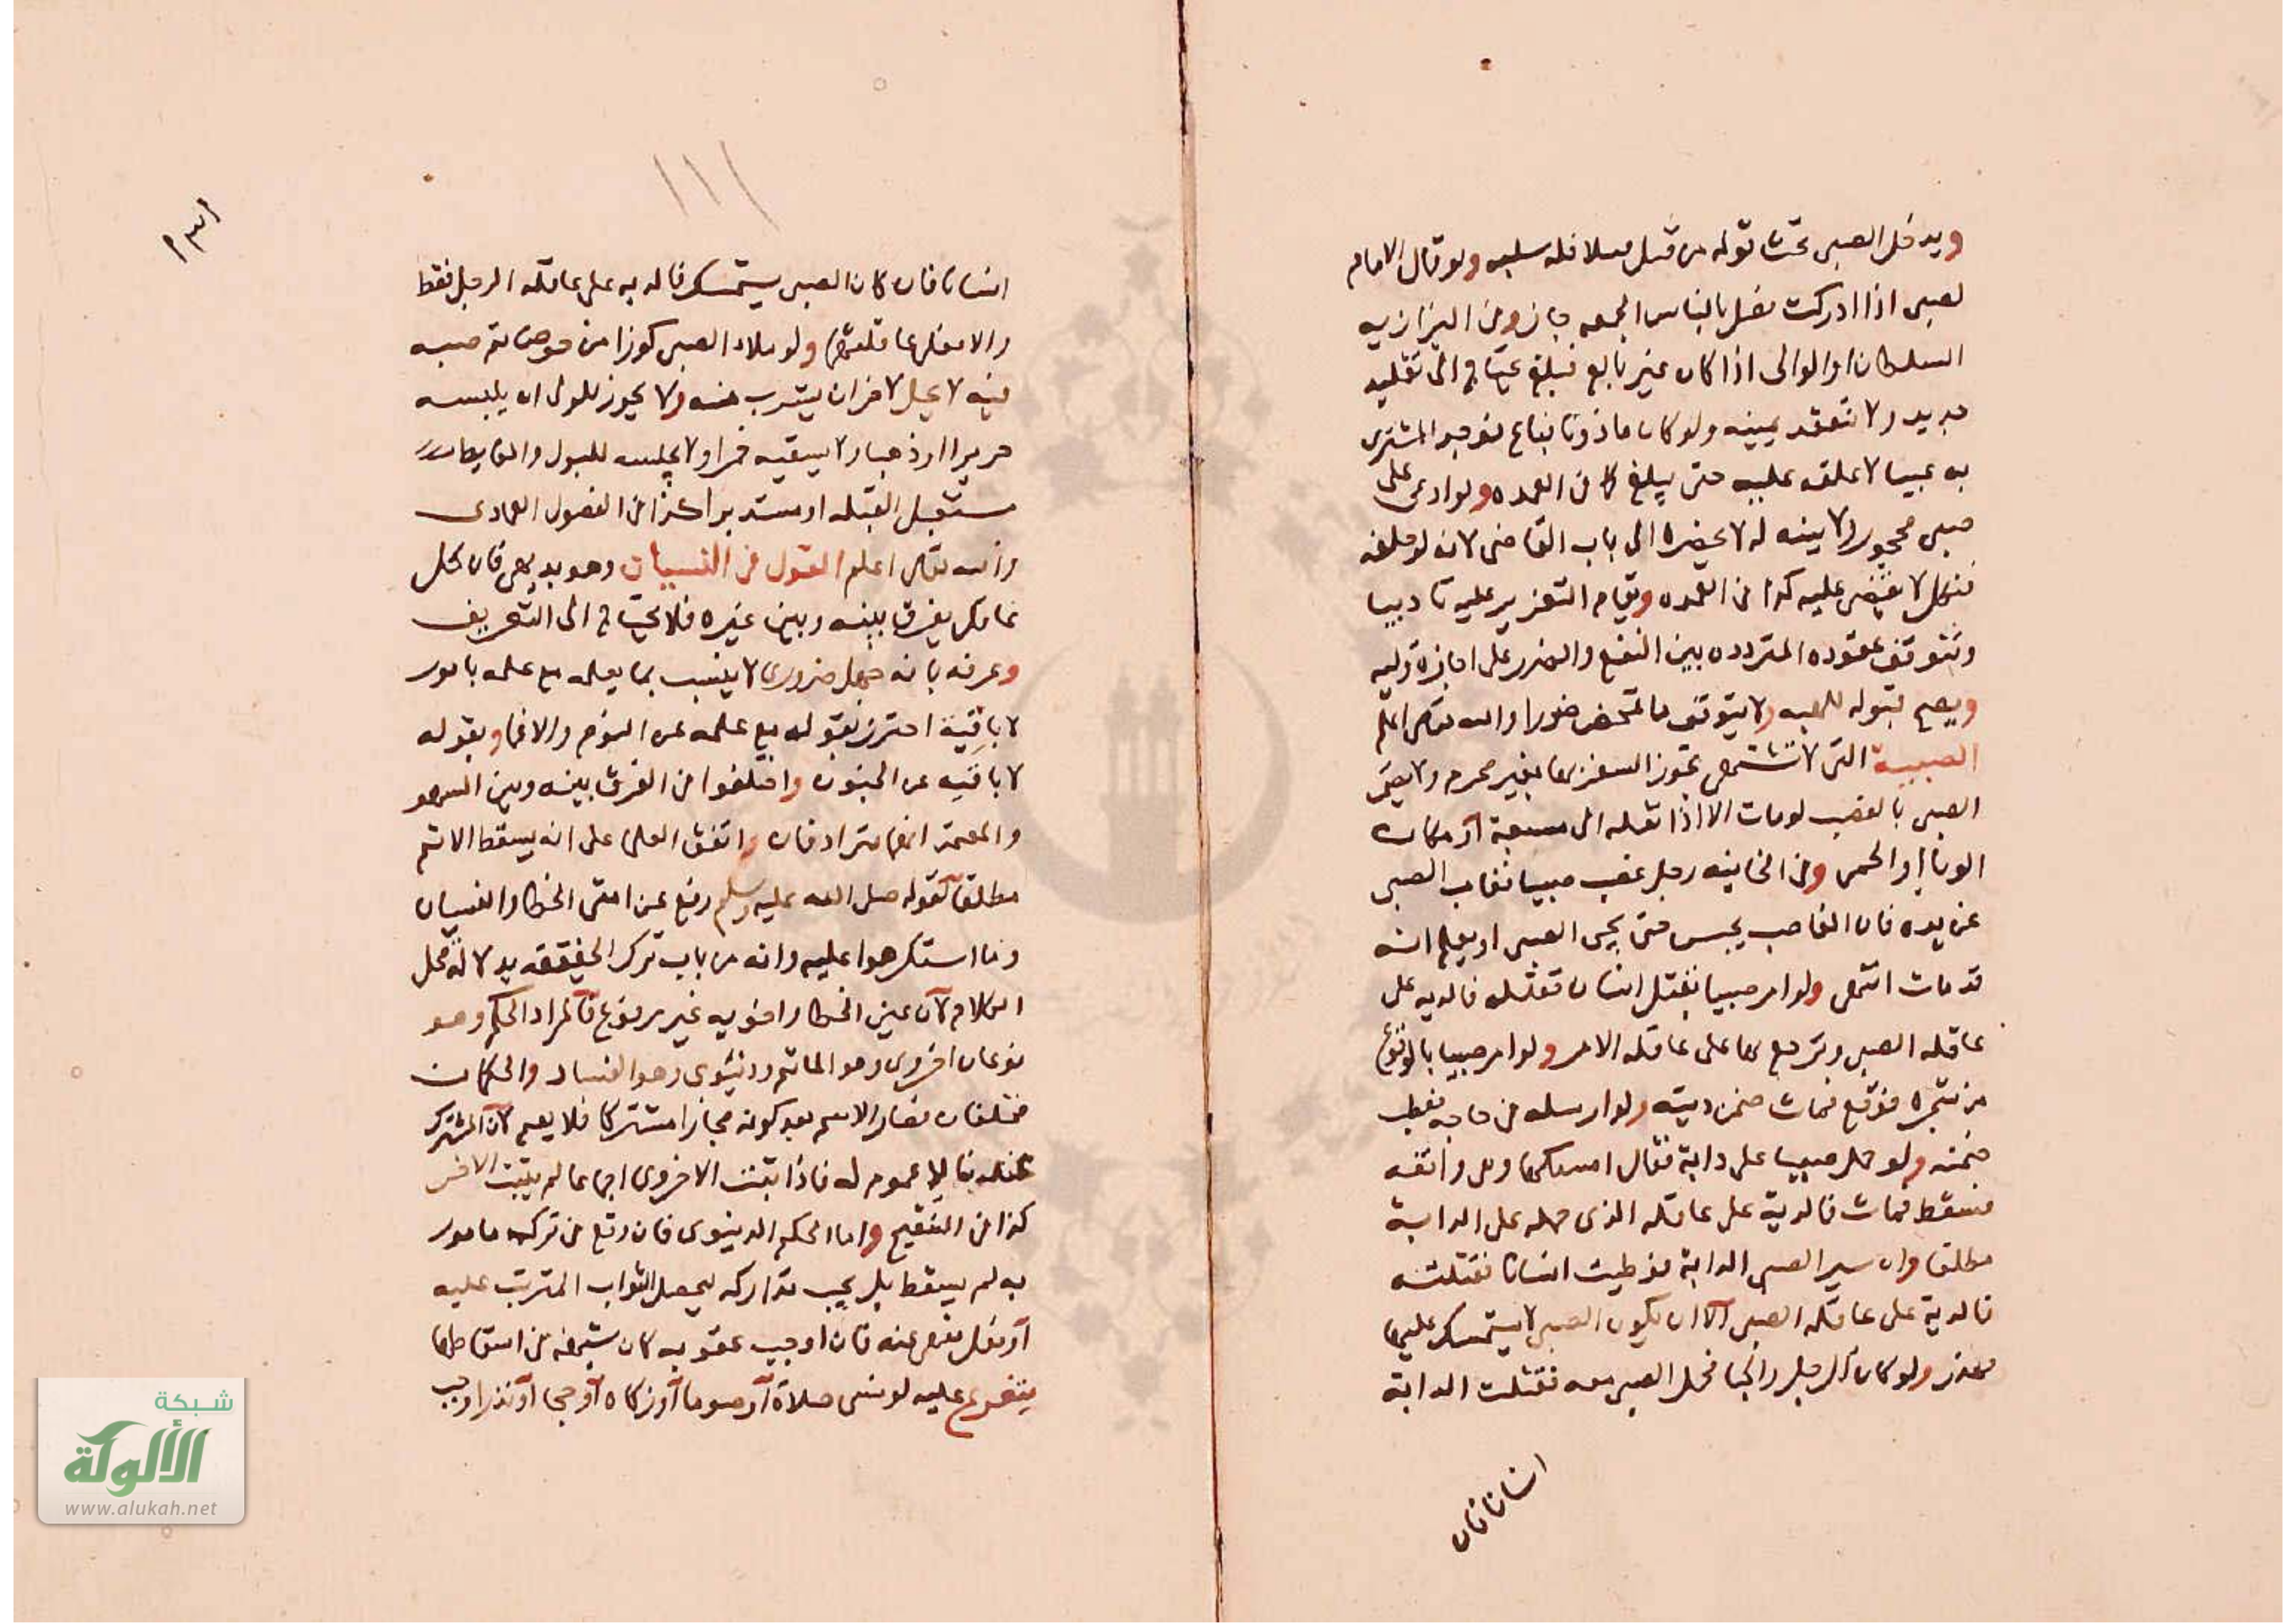 ويدخل الصبي تحت قوله من قتل قتيلا فله سلبه ولو قال الامام
لصبي اذا ادركت فصل بالناس الجمعه جاز وفي البزازيه
السلطان او الوالي اذا كان غير بالغ فبلغ يحتاج الى تقليد
جديد ولا تنعقد يمينه ولو كان ماذونا فباع فوجد المشتري
به عيبا لا يحلفه عليه حتى يبلغ كما في العمده ولو ادعى على
صبي محجور ولا بينه له لا يحضره الى باب القاضي لانه لو حلفه
فنكل لا يقضى عليه كذا في العمده ويقام التعزير عليه تاديبا
وتتوقف عقوده المتردده بين النفع والضرر على اجازة وليه
ويصح قبوله للهبه ولا يتوقف ما تمحض ضررا والله تعالى اعلم
الصبية التي لا تشتهى يجوز السفر بها بغير محرم ولا يضمن
الصبي بالغصب لو مات الا اذا نقله الى مسبعة او مكان
الوباء او الحمى وفي الخانيه رجل غصب صبيا فغاب الصبي
عن يده فان الغاصب يحبس حتى يجي الصبي او يعلم انه
قد مات انتهى ولو امر صبيا بقتل انسان فقتله فالديه على
عاقله الصبي وترجع بها على عاقله الامر ولو امر صبيا بالوقوع
من شجره فوقع فمات ضمن ديته ولو ارسله في حاجه فعطب
ضمنه ولو حمل صبيا على دابة فقال امسكها لي واقفه
فسقط فمات فالدية على عاقله الذي حمله على الدابة
مطلقا وان سير الصبي الدابة فوطيت انسانا فقتلته
فالدية على عاقله الصبي الا ان يكون الصبي لا يستمسك عليها
فهدر ولو كان الرجل راكبا فحمل الصبي معه فقتلت الدابة
انسانا فان
١٣١
١١١
انسانا فان كان الصبي يستمسك فالديه على عاقله الرجل فقط
والا فعلى عاقلتهما ولو ملاء الصبي كوزا من حوض ثم صبه
فيه لا يحل لاخر ان يشرب منه ولا يجوز للولي ان يلبسه
حريرا او ذهبا ولا يسقيه خمرا ولا يجلسه للبول والغايط
مستقبل القبله او مستدبرا كذا في الفصول العمادي
والله تعالى اعلم القول في النسيان وهو بديهي فان كل
عاقل يفرق بينه وبين غيره فلا يحتاج الى التعريف
وعرفه بانه جهل ضروري لا ينسب بما يعلمه مع علمه بامور
لا بافية احترز بقوله مع علمه عن النوم والاغما وبقوله
لا بافيه عن الجنون واختلفوا في الفرق بينه وبين السهو
والمعتمد انهما مترادفان واتفق العلما على انه يسقط الاثم
مطلقا لقوله صلى الله عليه وسلم رفع عن امتي الخطا والنسيان
وما استكرهوا عليه وانه من باب ترك الحقيقه بدلالة محل
الكلام لان عين الخطا واخويه غير مرفوع فالمراد الحكم وهو
نوعان اخروي وهو الماثم ودنيوي وهو الفساد والحكمان
مختلفان فصار الاسم بعد كونه مجازا مشتركا فلا يعم لان المشترك
عندنا لا عموم له فاذا ثبت الاخروي اجماعا لم يثبت الاخر
كذا في التنقيح واما الحكم الدنيوي فان وقع في ترك مامور
به لم يسقط بل يجب تداركه ليحصل الثواب المترتب عليه
او فعل منهى عنه فان اوجب عقوبه كان شبهه في اسقاطها
يتفرع عليه لو نسى صلاة او صوما او زكاه او حجا او نذرا وجب
شبكة
الألوكة
www.alukah.net